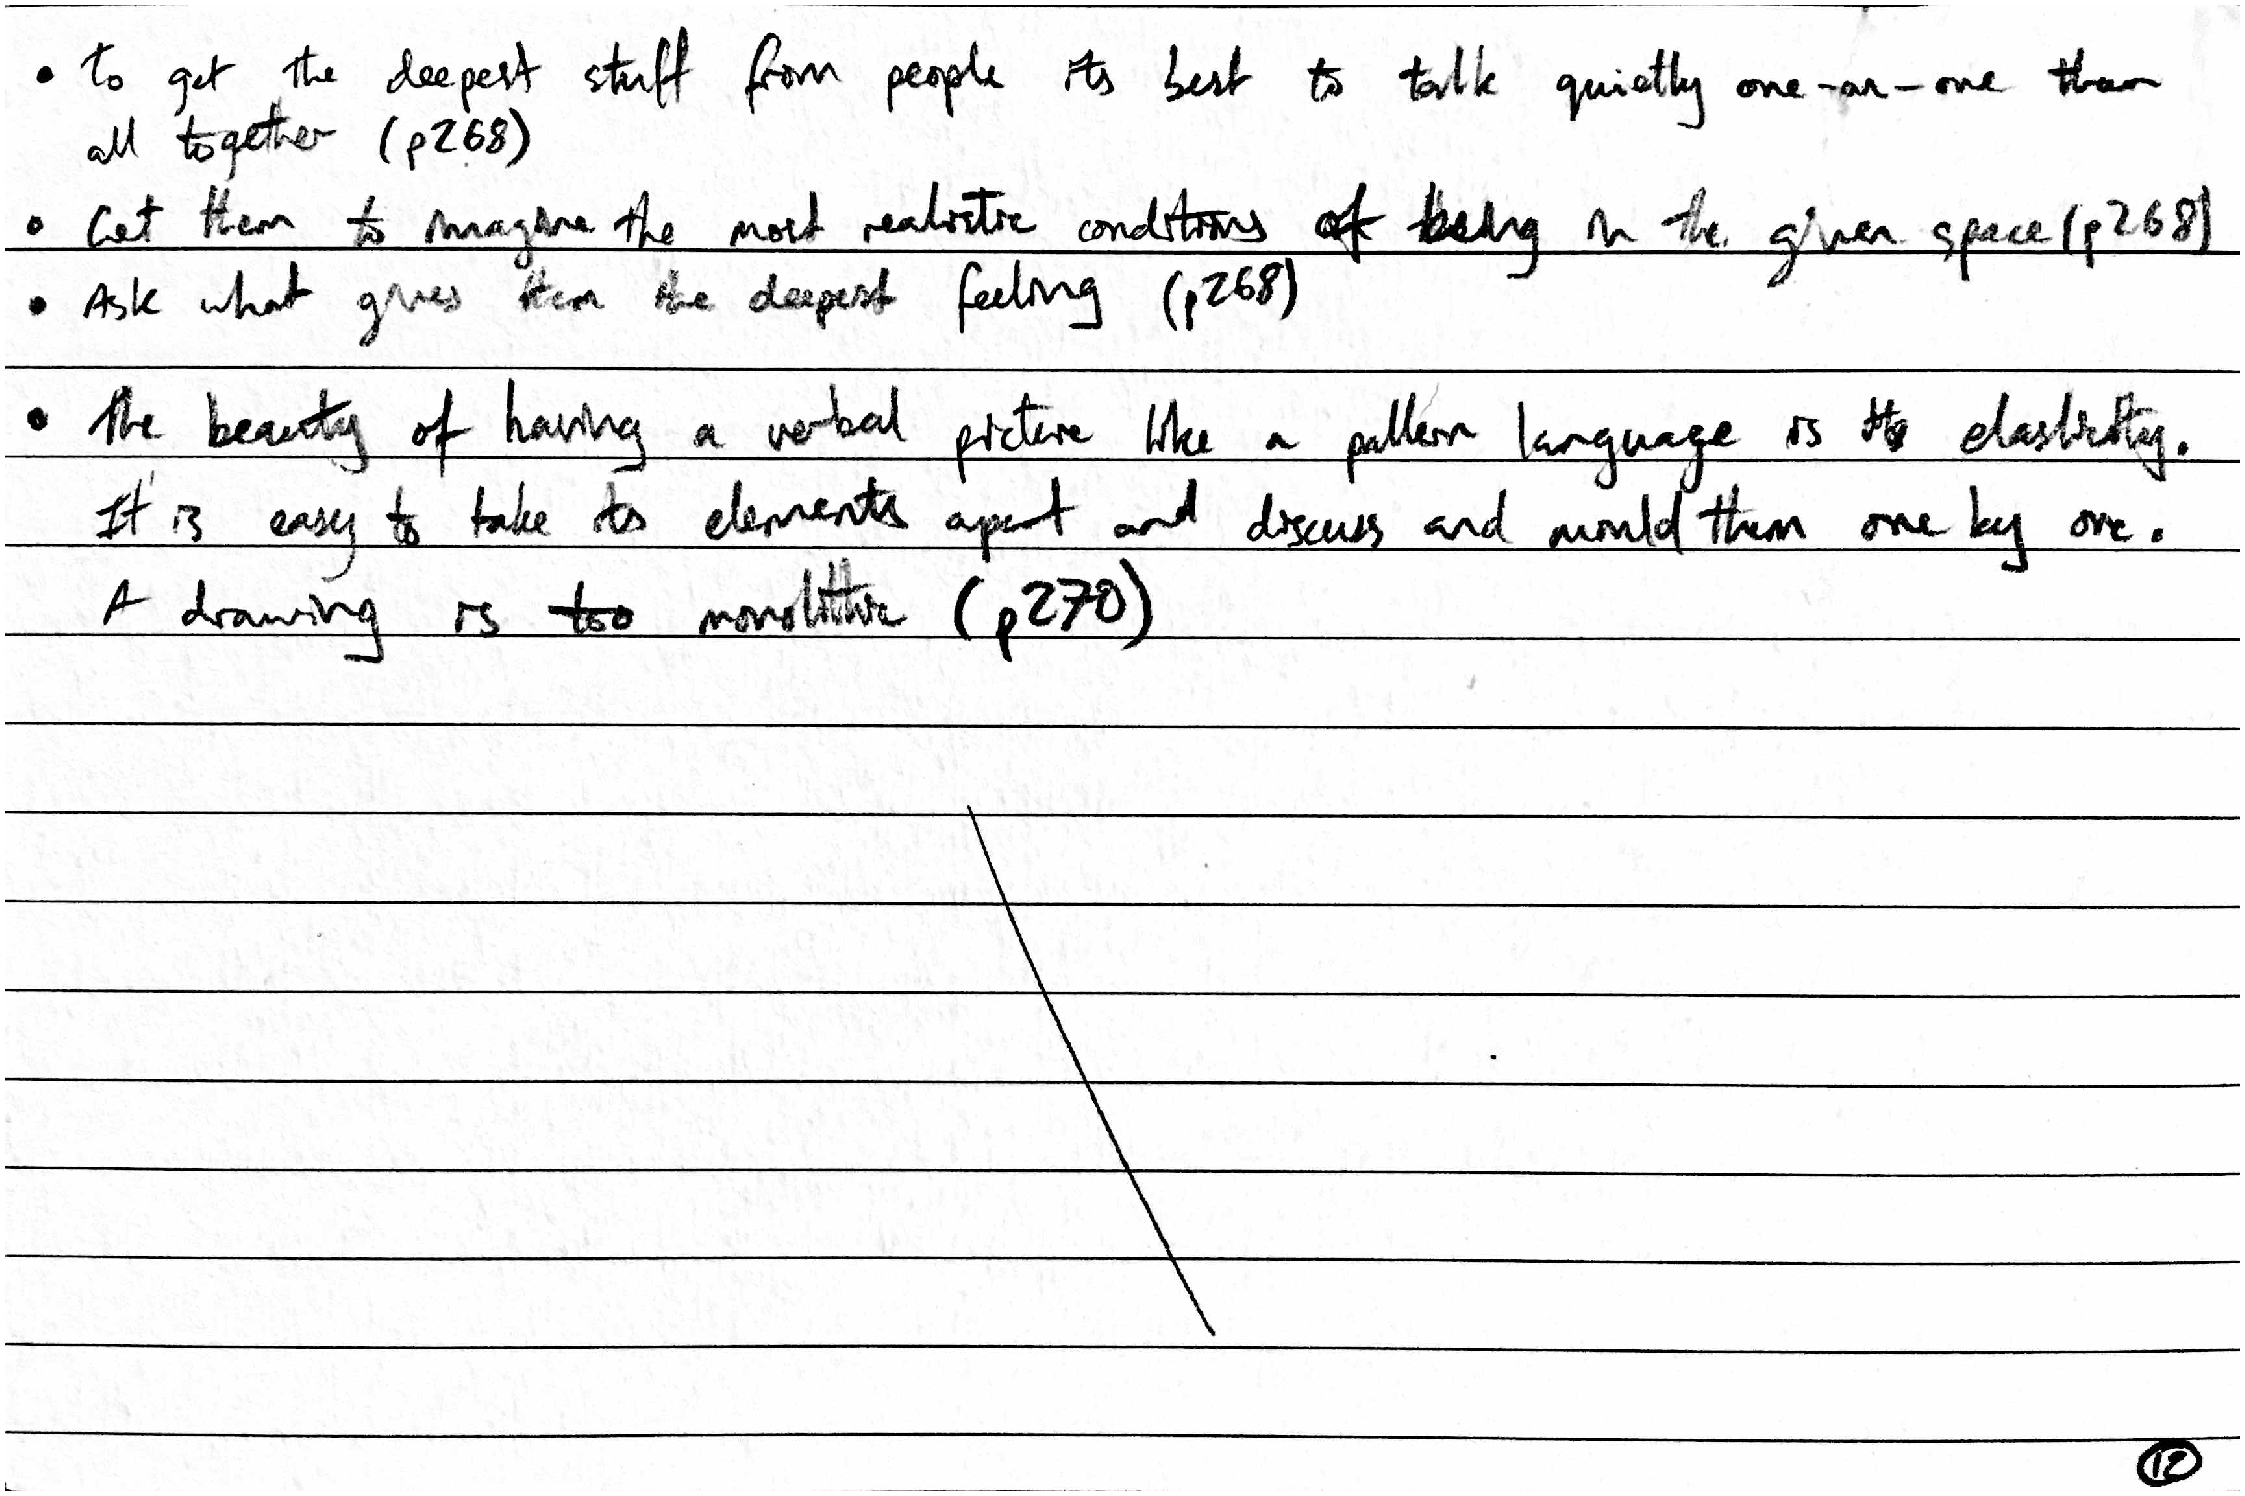 • To get the deepest stuff from people its best to talk quietly one-on-one than
all together (p268)
• Get them to imagine the most realistic conditions of being in the given space (p268)
• Ask what gives them the deepest feeling (p268)
• The beauty of having a verbal picture like a pattern language is its elasticity.
It is easy to take its elements apart and discuss and mould them one by one.
A drawing is too monolithic (p270)
12